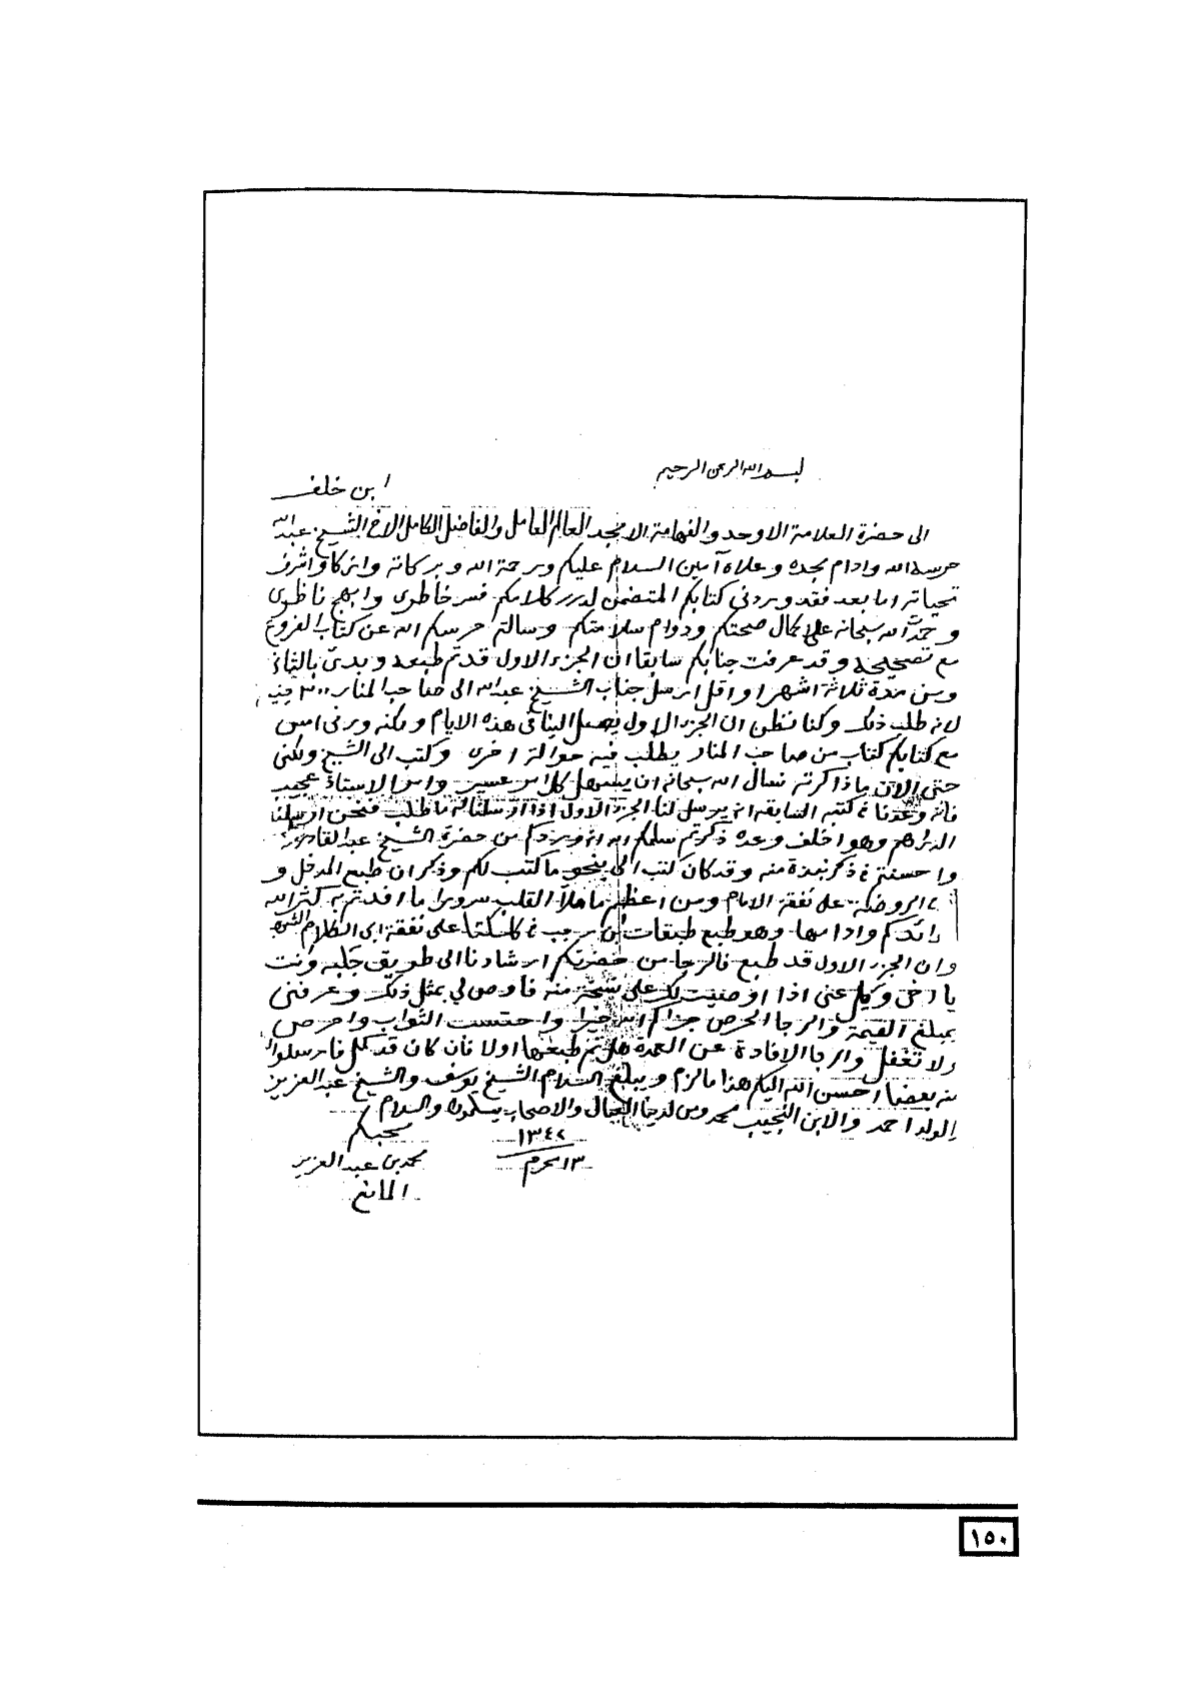 بسم الله الرحمن الرحيم
ابن خلف
الى حضرة العلامة الاوحد والفهامة الامجد العالم العامل والفاضل الكامل الاخ الشيخ عبدالله
حرسه الله وادام مجده وعلاه آمين السلام عليكم ورحمة الله وبركاته وازكا واشرف
تحياته اما بعد فقد وردني كتابكم المتضمن لدرر كلامكم فسر خاطري وابهج ناظري
وحمدت الله سبحانه على كمال صحتكم ودوام سلامتكم وسالتم حرسكم الله عن كتاب الفروع
مع تصحيحه وقد عرفت جنابكم سابقا ان الجزء الاول قد تم طبعه وبدئ بالثاني
ومن مدة ثلاثة اشهر او اقل ارسل جناب الشيخ عبدالله الى صاحب المنار ٣٠٠ جنيه
لانه طلب ذلك وكنا نظن ان الجزء الاول يصل الينا في هذه الايام ولكنه ورني امس
مع كتابكم كتاب من صاحب المنار يطلب فيه حوالة اخرى وكتب الى الشيخ ولكني
حتى الآن ما ذاكرته نسال الله سبحانه ان يسهل كل امر عسير وامر الاستاذ عجيب
فانه وعدنا في كتبه السابقة انه يرسل لنا الجزء الاول اذا ارسلنا له ما طلب فنحن ارسلنا
الدراهم وهو اخلف وعده ذكرتم سلمكم الله انه وردكم من حضرة الشيخ عبدالقادر
واحسنتم في ذكر نبذة منه وقد كان كتب الي بنحو ما كتب لكم وذكر ان طبع المدخل و
الروضة على نفقة الامام ومن اعظم ما ملأ القلب سرورا ما افدتم به كثر الله
فوائدكم وادامها وهو طبع طبقات ابن رجب في كلكتا على نفقة ابي الكلام الشهير
وان الجزء الاول قد طبع فالرجا من حضرتكم ارشادنا الى طريق جلبه وانت
يا اخي وكيل عني اذا اوصيت لك على نسخة منه فاوص لي بمثل ذلك وعرفني
بمبلغ القيمة والرجا الحرص جزاكم الله خيرا واحتسب الثواب واحرص
ولا تغفل والرجا الافادة عن العمدة هل تم طبعها اولا فان كان قد كمل فارسلوا
منه بعضا احسن الله اليكم هذا ما لزم ويبلغ السلام الشيخ يوسف والشيخ عبدالعزيز
الولد احمد والابن النجيب محمد ومن لدينا العيال والاصحاب يسلمون والسلام
١٣٤٢
١٣ محرم
محبكم
محمد بن عبدالعزيز
المانع
١٥٠